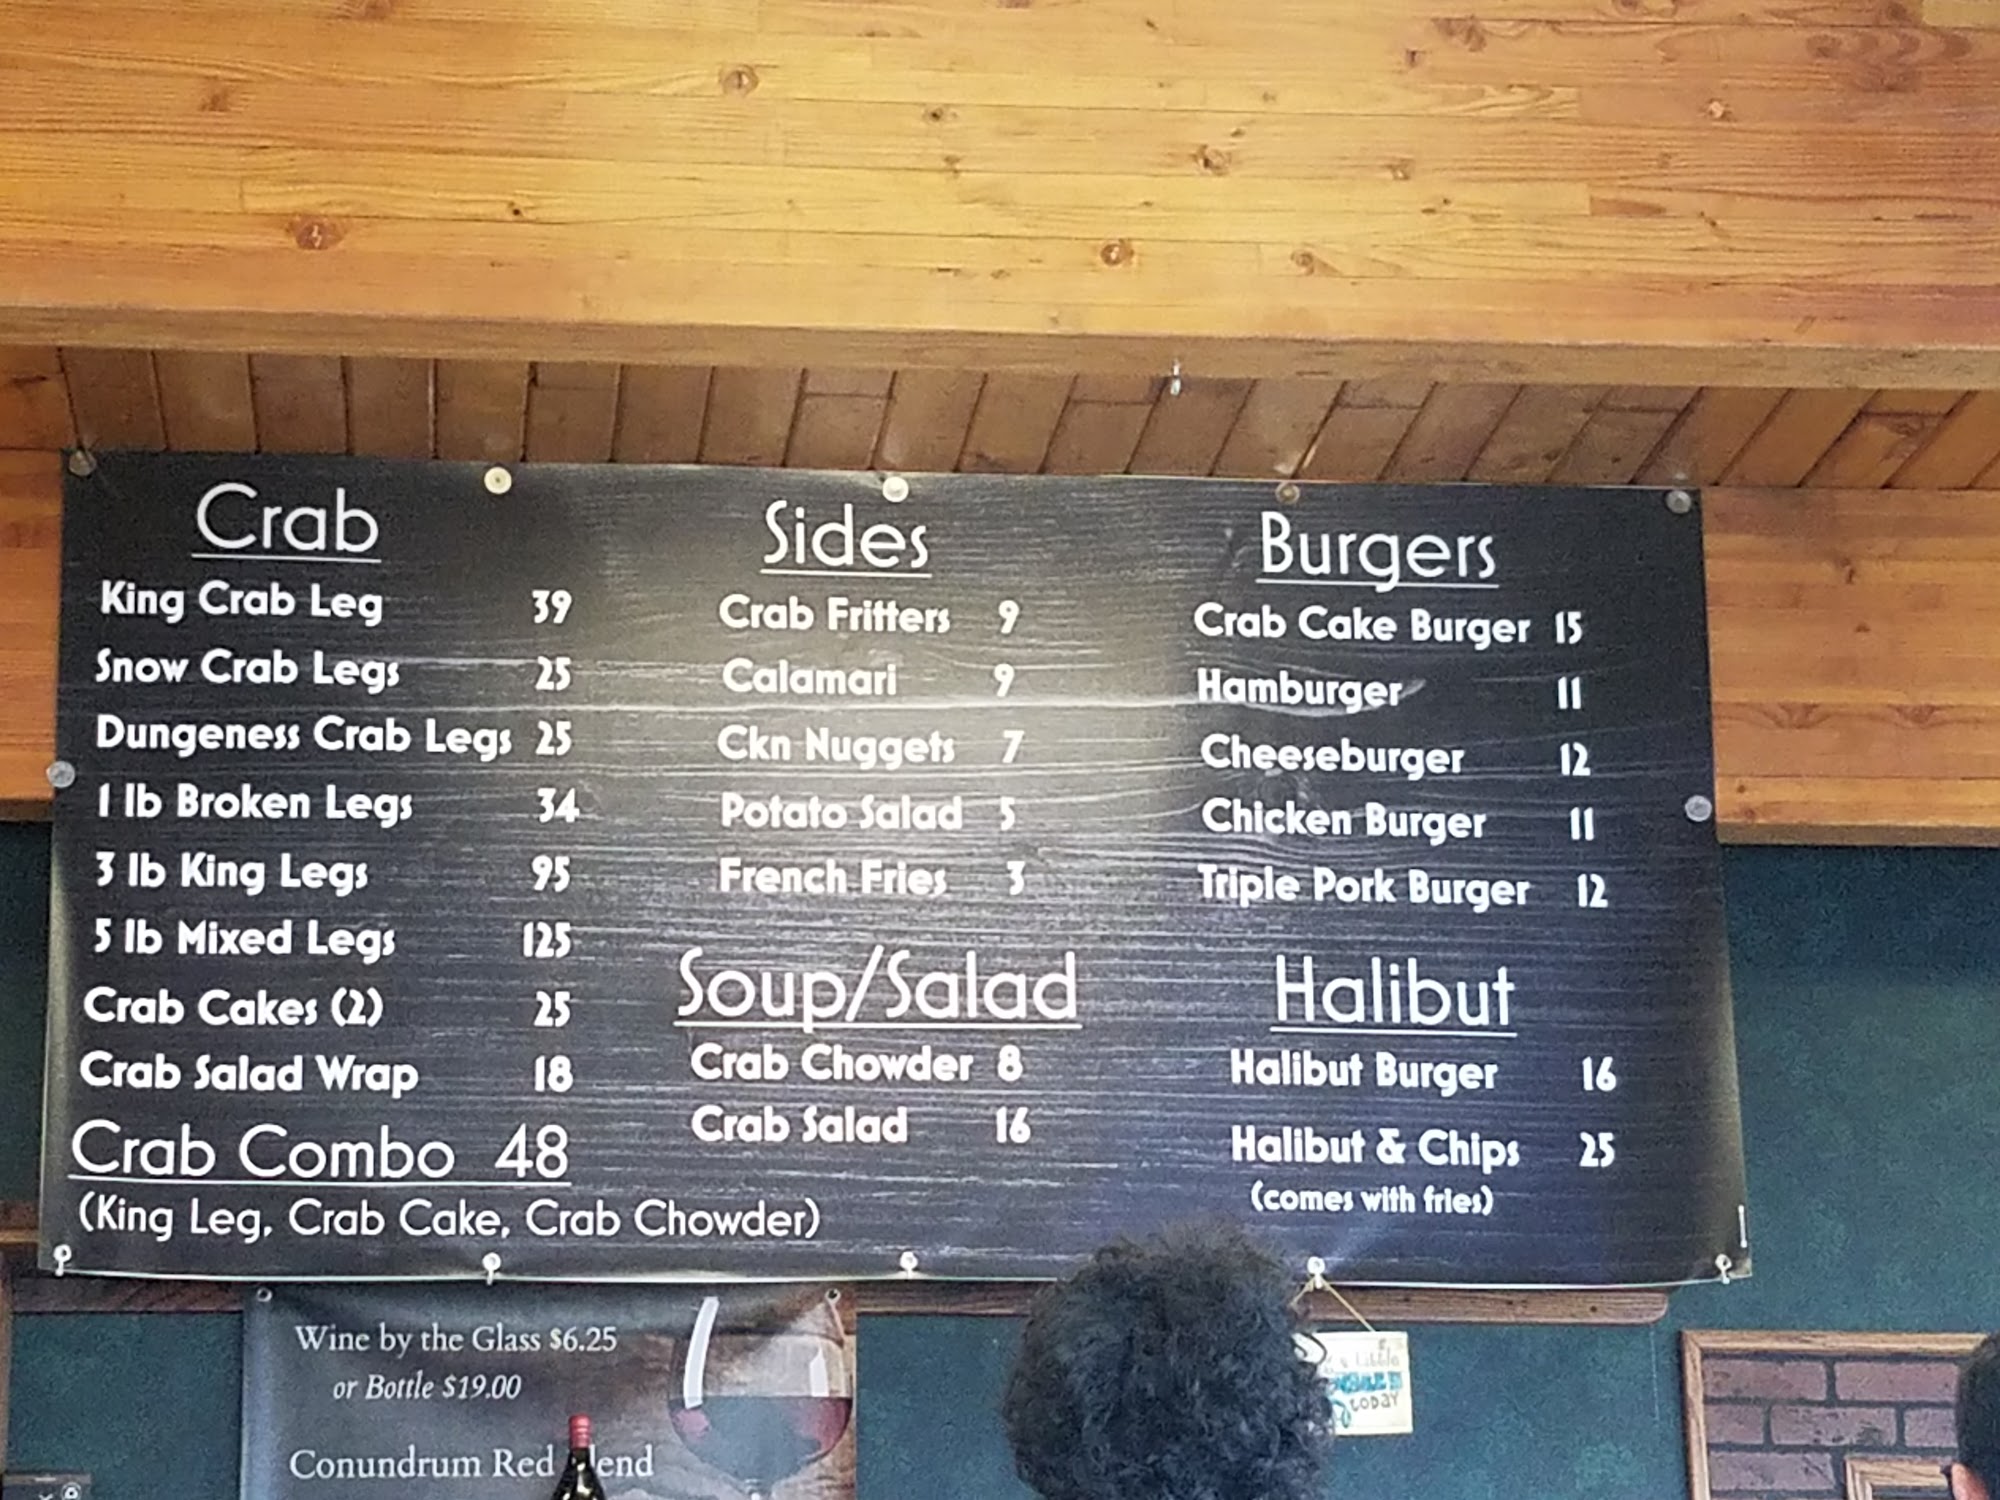 Crab
King Crab Leg 39
Snow Crab Legs 25
Dungeness Crab Legs 25
1 lb Broken Legs 34
3 lb King Legs 95
5 lb Mixed Legs 125
Crab Cakes (2) 25
Crab Salad Wrap 18
Crab Combo 48
(King Leg, Crab Cake, Crab Chowder)
Sides
Crab Fritters 9
Calamari 9
Ckn Nuggets 7
Potato Salad 5
French Fries 3
Soup/Salad
Crab Chowder 8
Crab Salad 16
Burgers
Crab Cake Burger 15
Hamburger 11
Cheeseburger 12
Chicken Burger 11
Triple Pork Burger 12
Halibut
Halibut Burger 16
Halibut & Chips 25
(comes with fries)
Wine by the Glass $6.25
or Bottle $19.00
Conundrum Red
today